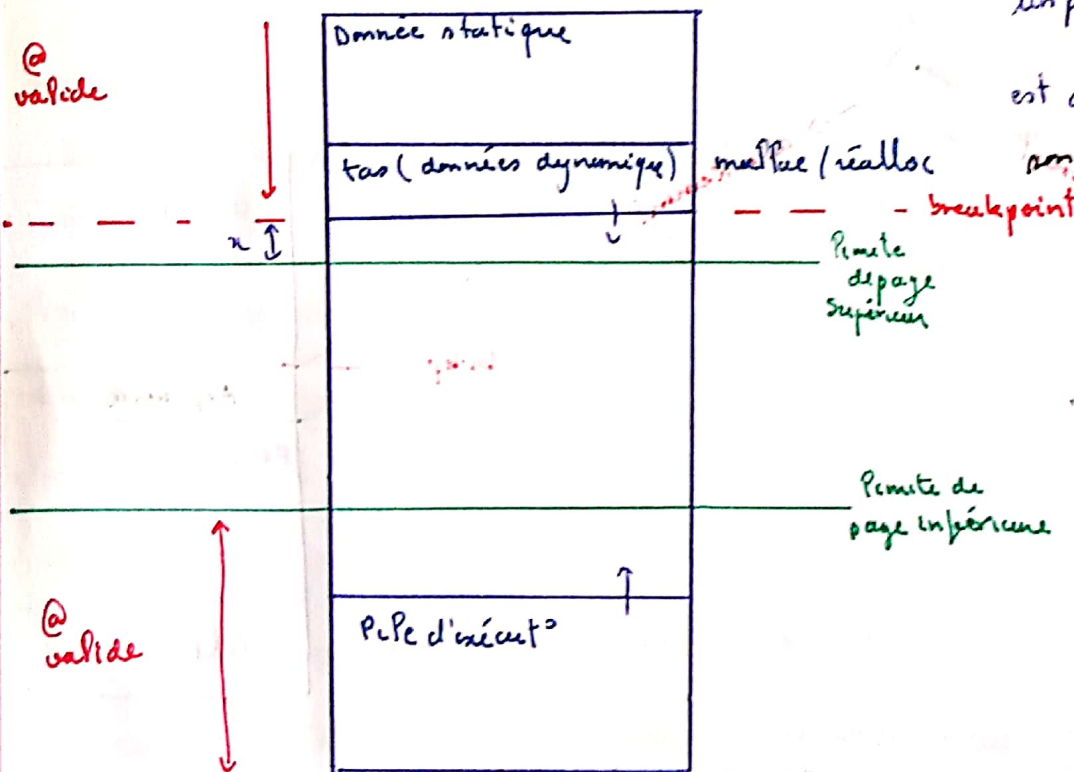 Donnée statique
@
valide
est
tas (données dynamique) malloc / réalloc
breakpoint
x
limite
de page
supérieur
limite de
page inférieure
@
valide
Pile d'exécut°